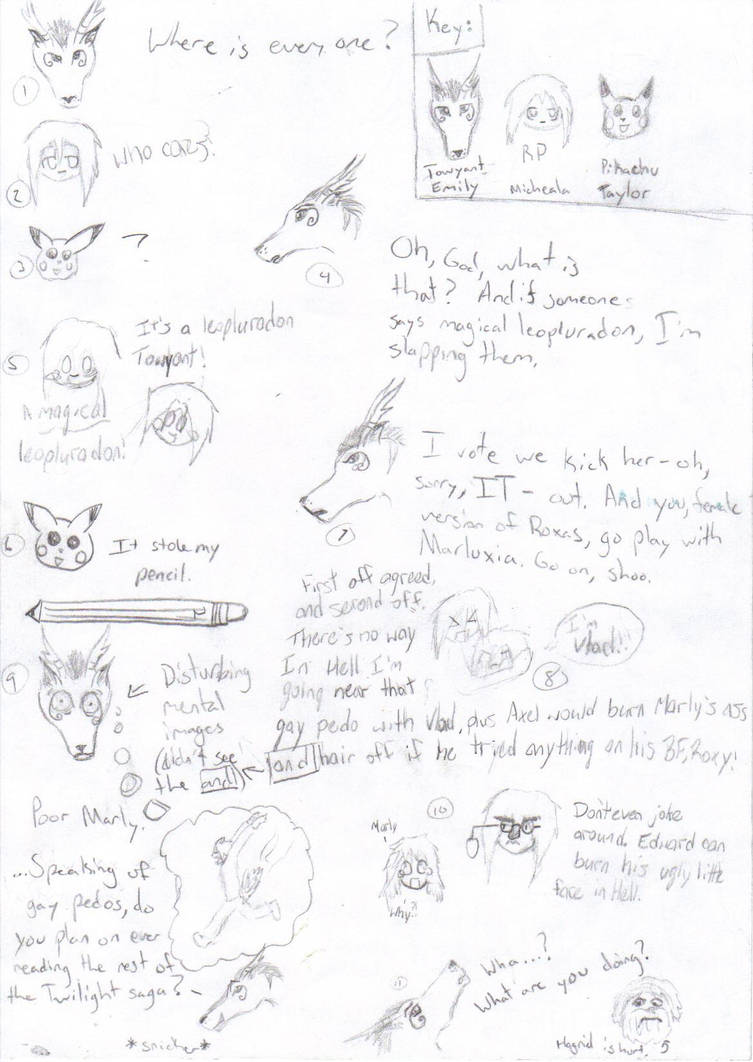 Key:
Towyant
Emily
RP
Micheala
Pikachu
Taylor
1
Where is everyone?
2
Who cares?
3
?
4
Oh, God, what is
that? And if someone
says magical leopluradon, I'm
slapping them.
5
It's a leopluradon
Towyant!
A magical
leopluradon!
6
It stole my
pencil.
7
I vote we kick her-oh,
sorry, IT - out. And you, female
version of Roxas, go play with
Marluxia. Go on, shoo.
8
First off agreed,
and second off.
There's no way
In Hell I'm
going near that
gay pedo with Vlad, plus Axel would burn Marly's ass
and hair off if he tried anything on his BF, Roxy!
I'm
Vlad!!
9
Disturbing
mental
images
(didn't see
the and)
Poor Marly.
...Speaking of
gay pedos, do
you plan on ever
reading the rest of
the Twilight saga?
*snicker*
10
Marly
Why?!
Don't even joke
around. Edward can
burn his ugly little
face in Hell.
11
Wha...?
What are you doing?
Hagrid is hurt.